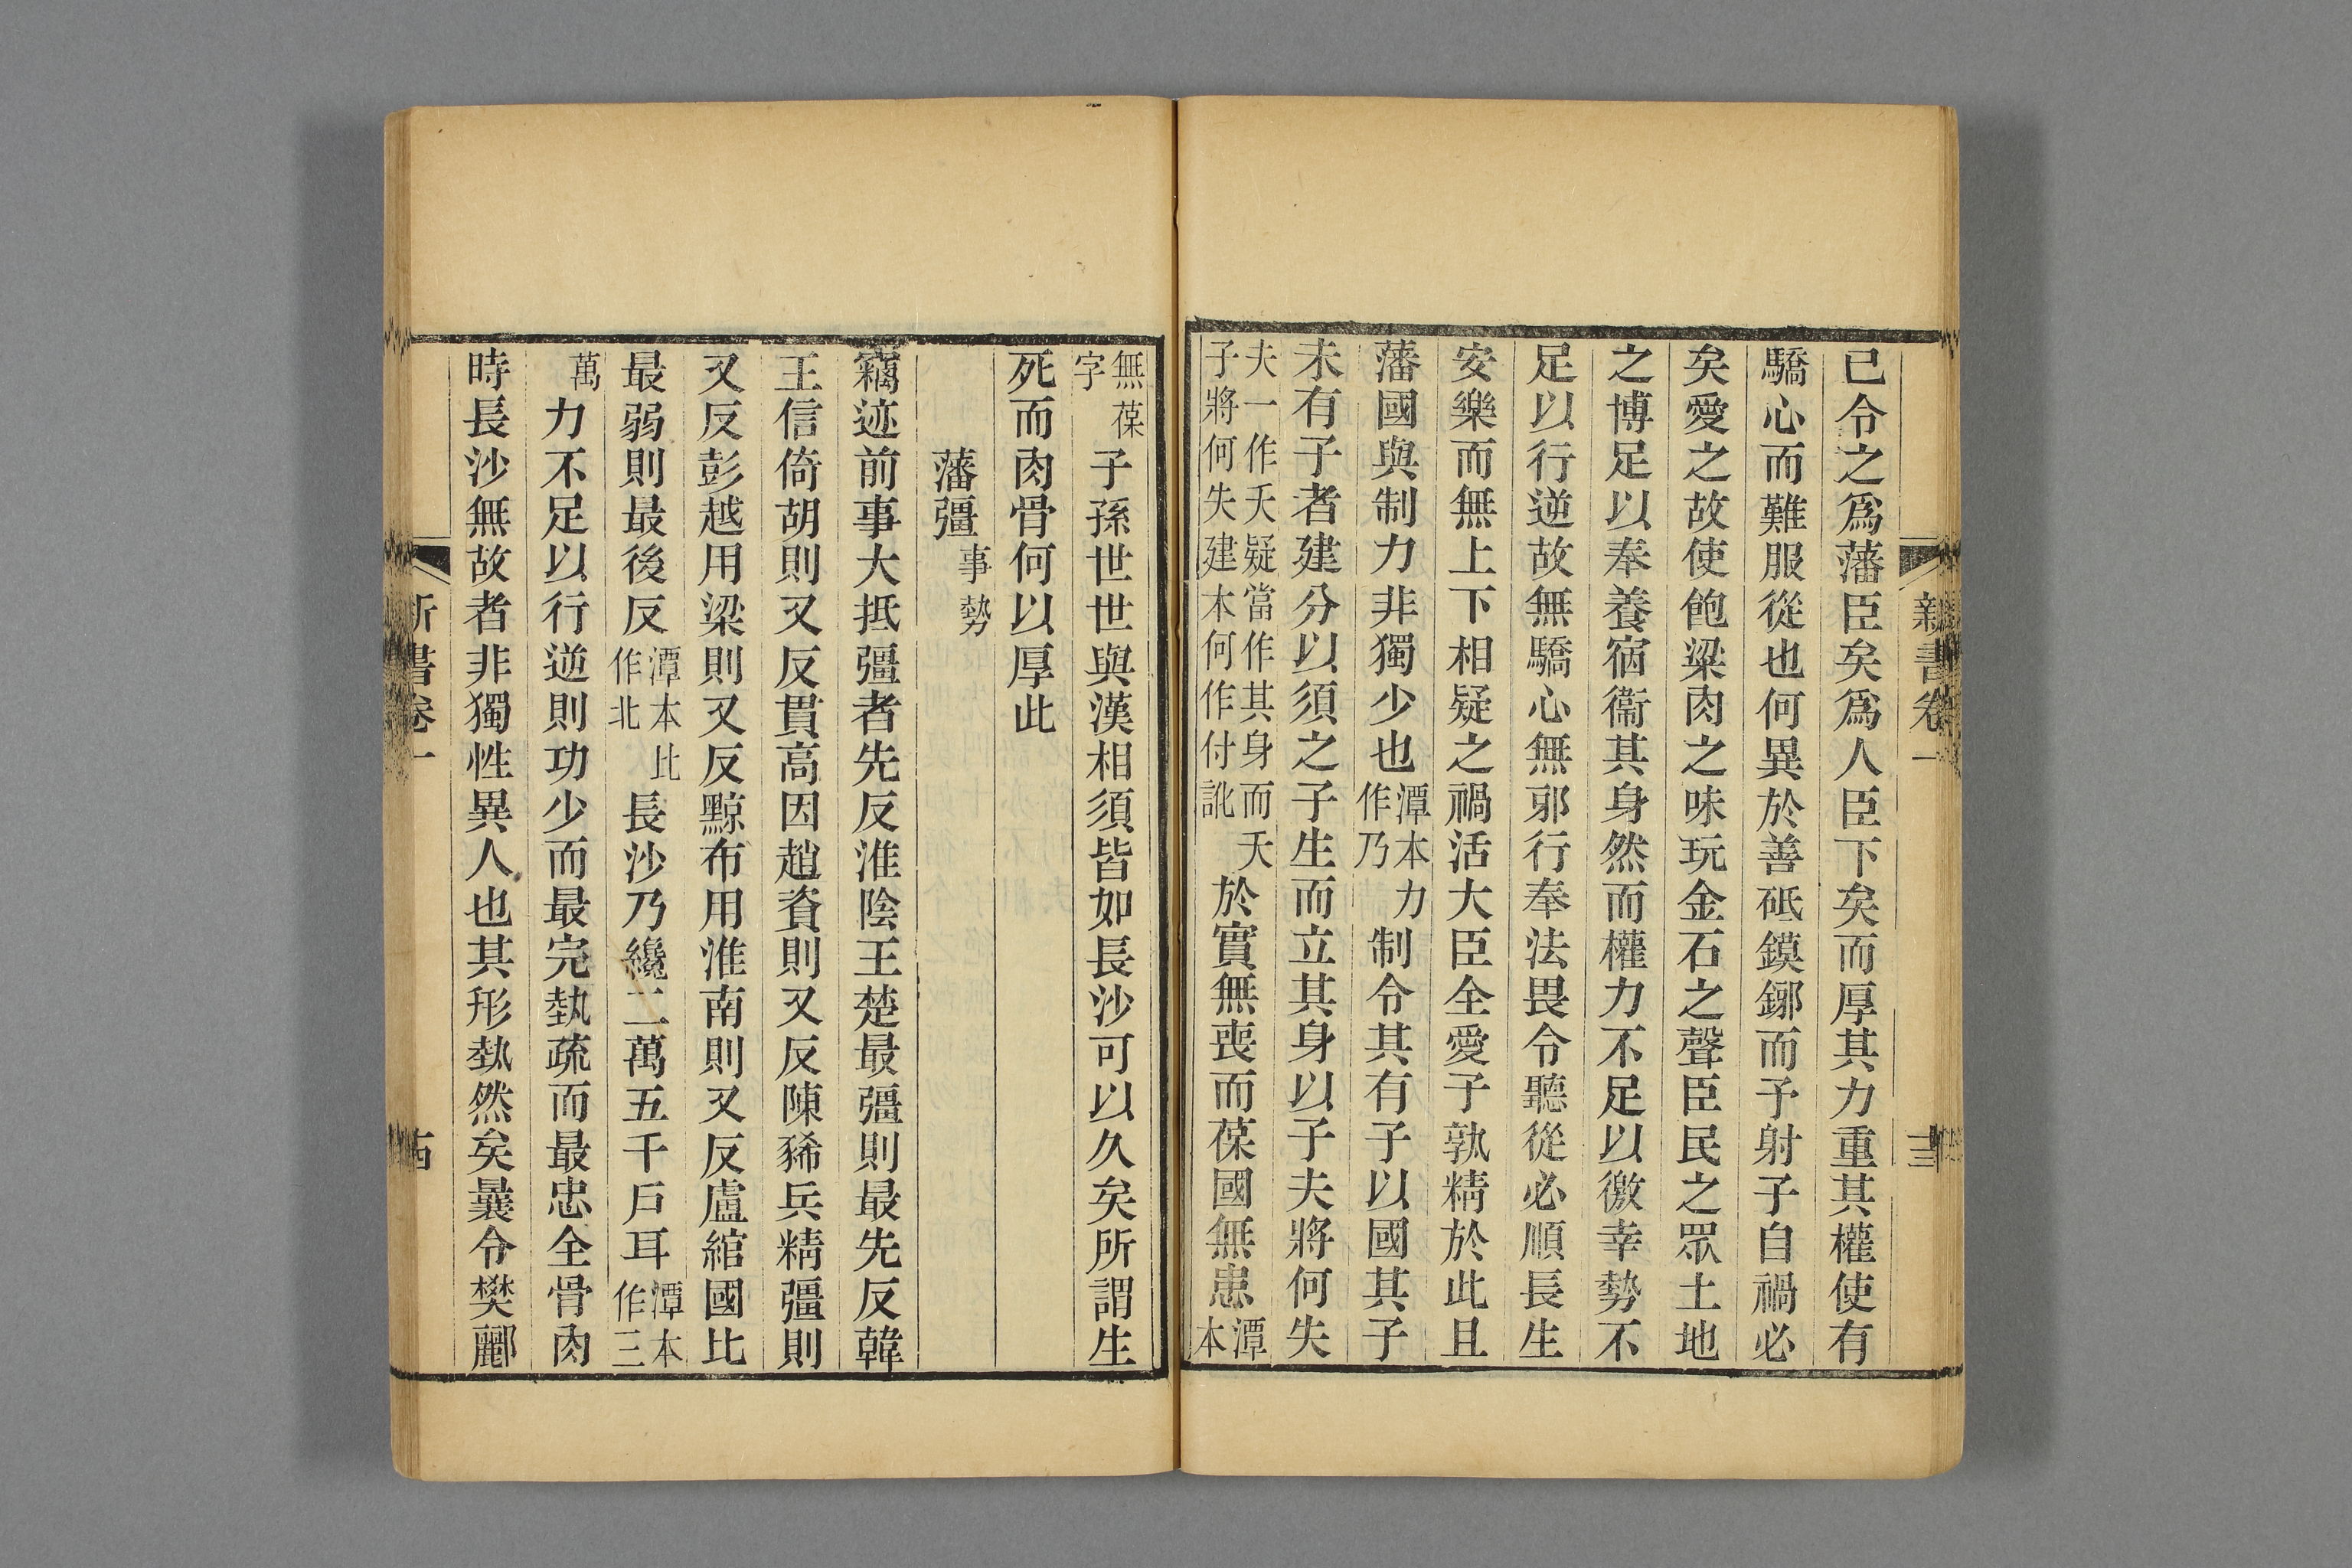 新書卷一
已令之爲藩臣矣爲人臣下矣而厚其力重其權使有
驕心而難服從也何異於善砥鏌鋣而予射子自禍必
矣愛之故使飽粱肉之味玩金石之聲臣民之眾土地
之博足以奉養宿衞其身然而權力不足以徼幸勢不
足以行逆故無驕心無邪行奉法畏令聽從必順長生
安樂而無上下相疑之禍活大臣全愛子孰精於此且
藩國與制力非獨少也潭本作乃力制令其有子以國其子
未有子者建分以須之子生而立其身以子夫將何失
夫一作夭疑當作其身而天子將何失建本何作付訛於實無喪而葆國無患潭本
無葆字子孫世世與漢相須皆如長沙可以久矣所謂生
死而肉骨何以厚此
藩彊事勢
竊迹前事大抵彊者先反淮陰王楚最彊則最先反韓
王信倚胡則又反貫高因趙資則又反陳豨兵精彊則
又反彭越用梁則又反黥布用淮南則又反盧綰國比
最弱則最後反潭本比作北長沙乃纔二萬五千戶耳潭本作三
萬力不足以行逆則功少而最完埶疏而最忠全骨肉
時長沙無故者非獨性異人也其形埶然矣曩令樊酈
新書卷一